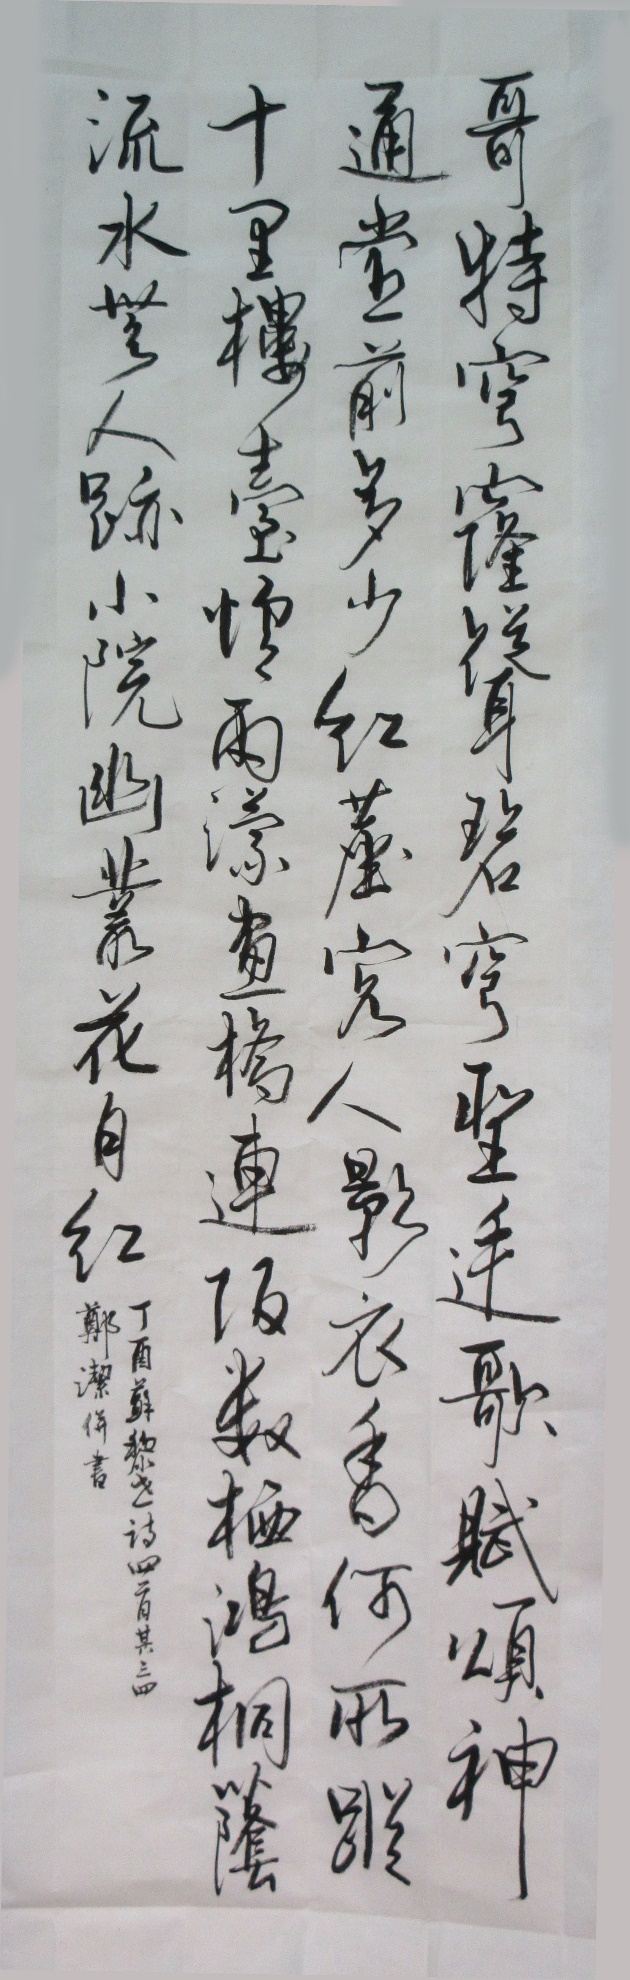 哥特穹窿聳碧穹聖歌賦頌神
通堂前多少紅塵客人影衣香何所蹤
十里樓臺雨濛畫橋連阪数栖鴻桐蔭
流水無人跡小院幽叢花自紅
丁酉蘇黎世詩四首其三四
鄭潔併書